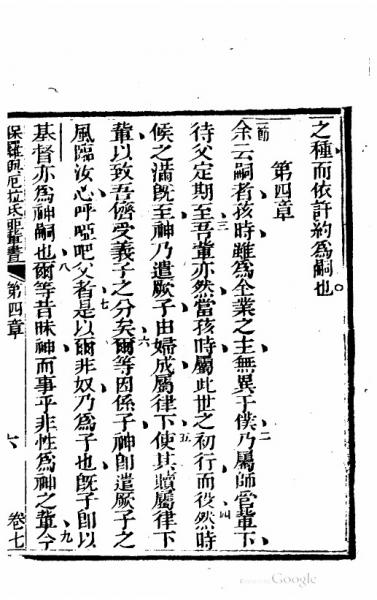 之種而依許約為嗣也。
第四章
一節
余云嗣者孩時雖為全業之主無異于僕乃屬師管輩下
二
待父定期至吾輩亦然當孩時屬此世之初行而役然時
三
四
候之滿既至神乃遣厥子由婦成屬律下使其贖屬律下
五
輩以致吾儕受義子之分矣爾等因係子神即遣厥子之
六
風臨汝心呼啞吧父者是以爾非奴乃為子也既子即以
七
基督亦為神嗣也爾等昔昧神而事乎非性為神之輩今
八
九
保羅與厄拉氐亞輩書
第四章
六
卷七
Google